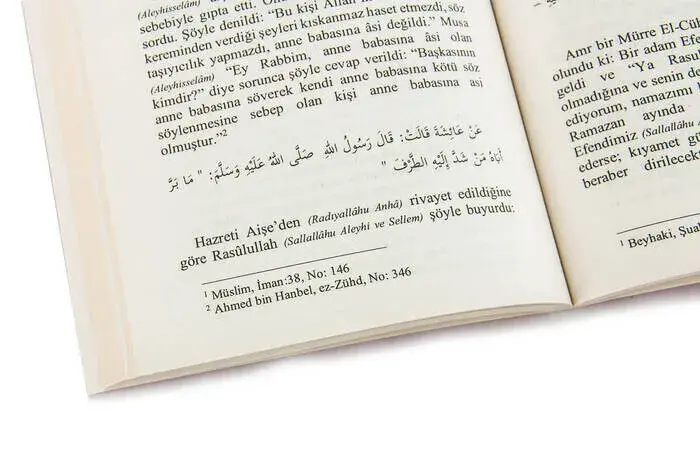 (Aleyhisselâm)
sebebiyle gıpta etti.
sordu. Şöyle denildi: "Bu kişi Allah'ın
kereminden verdiği şeyleri kıskanmaz haset etmezdi, söz
taşıyıcılık yapmazdı, anne babasına âsi değildi." Musa
(Aleyhisselâm) "Ey Rabbim, anne babasına âsi olan
kimdir?" diye sorunca şöyle cevap verildi: "Başkasının
anne babasına söverek kendi anne babasına kötü söz
söylenmesine sebep olan kişi anne babasına asi
olmuştur."2
عَنْ عَائِشَةَ قَالَتْ: قَالَ رَسُولُ اللهِ صَلَّى اللهُ عَلَيْهِ وَسَلَّمَ: " مَا بَرَّ
أَبَاهُ مَنْ شَدَّ إِلَيْهِ الطَّرْفَ "
Hazreti Aişe'den (Radıyallâhu Anhâ) rivayet edildiğine
göre Rasûlullah (Sallallâhu Aleyhi ve Sellem) şöyle buyurdu:
1 Müslim, İman:38, No: 146
2 Ahmed bin Hanbel, ez-Zühd, No: 346
Amr bir Mürre El-Cüh
olundu ki: Bir adam Efe
geldi ve "Ya Rasu
olmadığına ve senin
ediyorum, namazımı
Ramazan ayında
Efendimiz (Sallallâhu A
ederse; kıyamet gü
beraber dirilecekti
1 Beyhaki, Şua